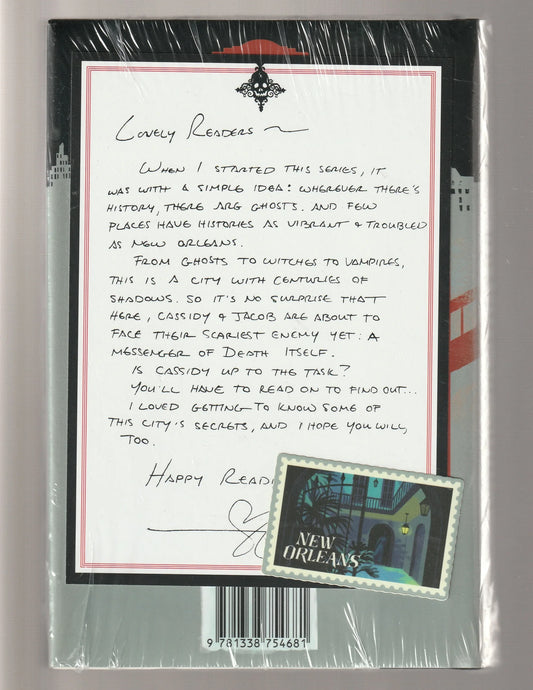 Lovely Readers ~
When I started this series, it
was with a simple idea: wherever there's
history, there are ghosts. And few
places have histories as vibrant & troubled
as New Orleans.
From ghosts to witches to vampires,
this is a city with centuries of
shadows. So it's no surprise that
here, Cassidy & Jacob are about to
face their scariest enemy yet: a
messenger of Death itself.
Is Cassidy up to the task?
You'll have to read on to find out...
I loved getting to know some of
this city's secrets, and I hope you will,
too.
Happy Readi
NEW
ORLEANS
9 781338 754681